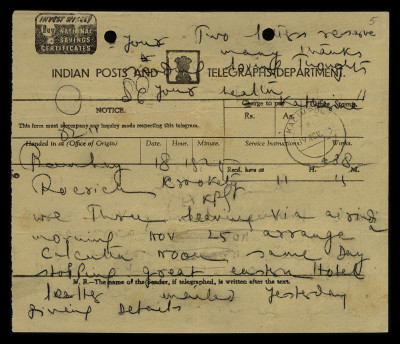 INVEST WISELY
Buy NATIONAL SAVINGS CERTIFICATES
5
Your Two letters reserve
many thanks
and loving thoughts
INDIAN POSTS AND TELEGRAPHS DEPARTMENT.
for your health
NOTICE.
Charge to pay
Office Stamp.
This form must accompany any inquiry made respecting this telegram.
Rs. As.
Handed in at (Office of Origin). Date. Hour. Minute. Service Instructions. Words.
Bombay 18 18 20 48
Recd. here at H. M.
Roerich Crookety 11
Kpg
we Three leaving via
morning Nov 25 arrange
Calcutta noon same day
stopping great eastern Hotel
N. B.—The name of the Sender, if telegraphed, is written after the text.
letter mailed yesterday
giving details